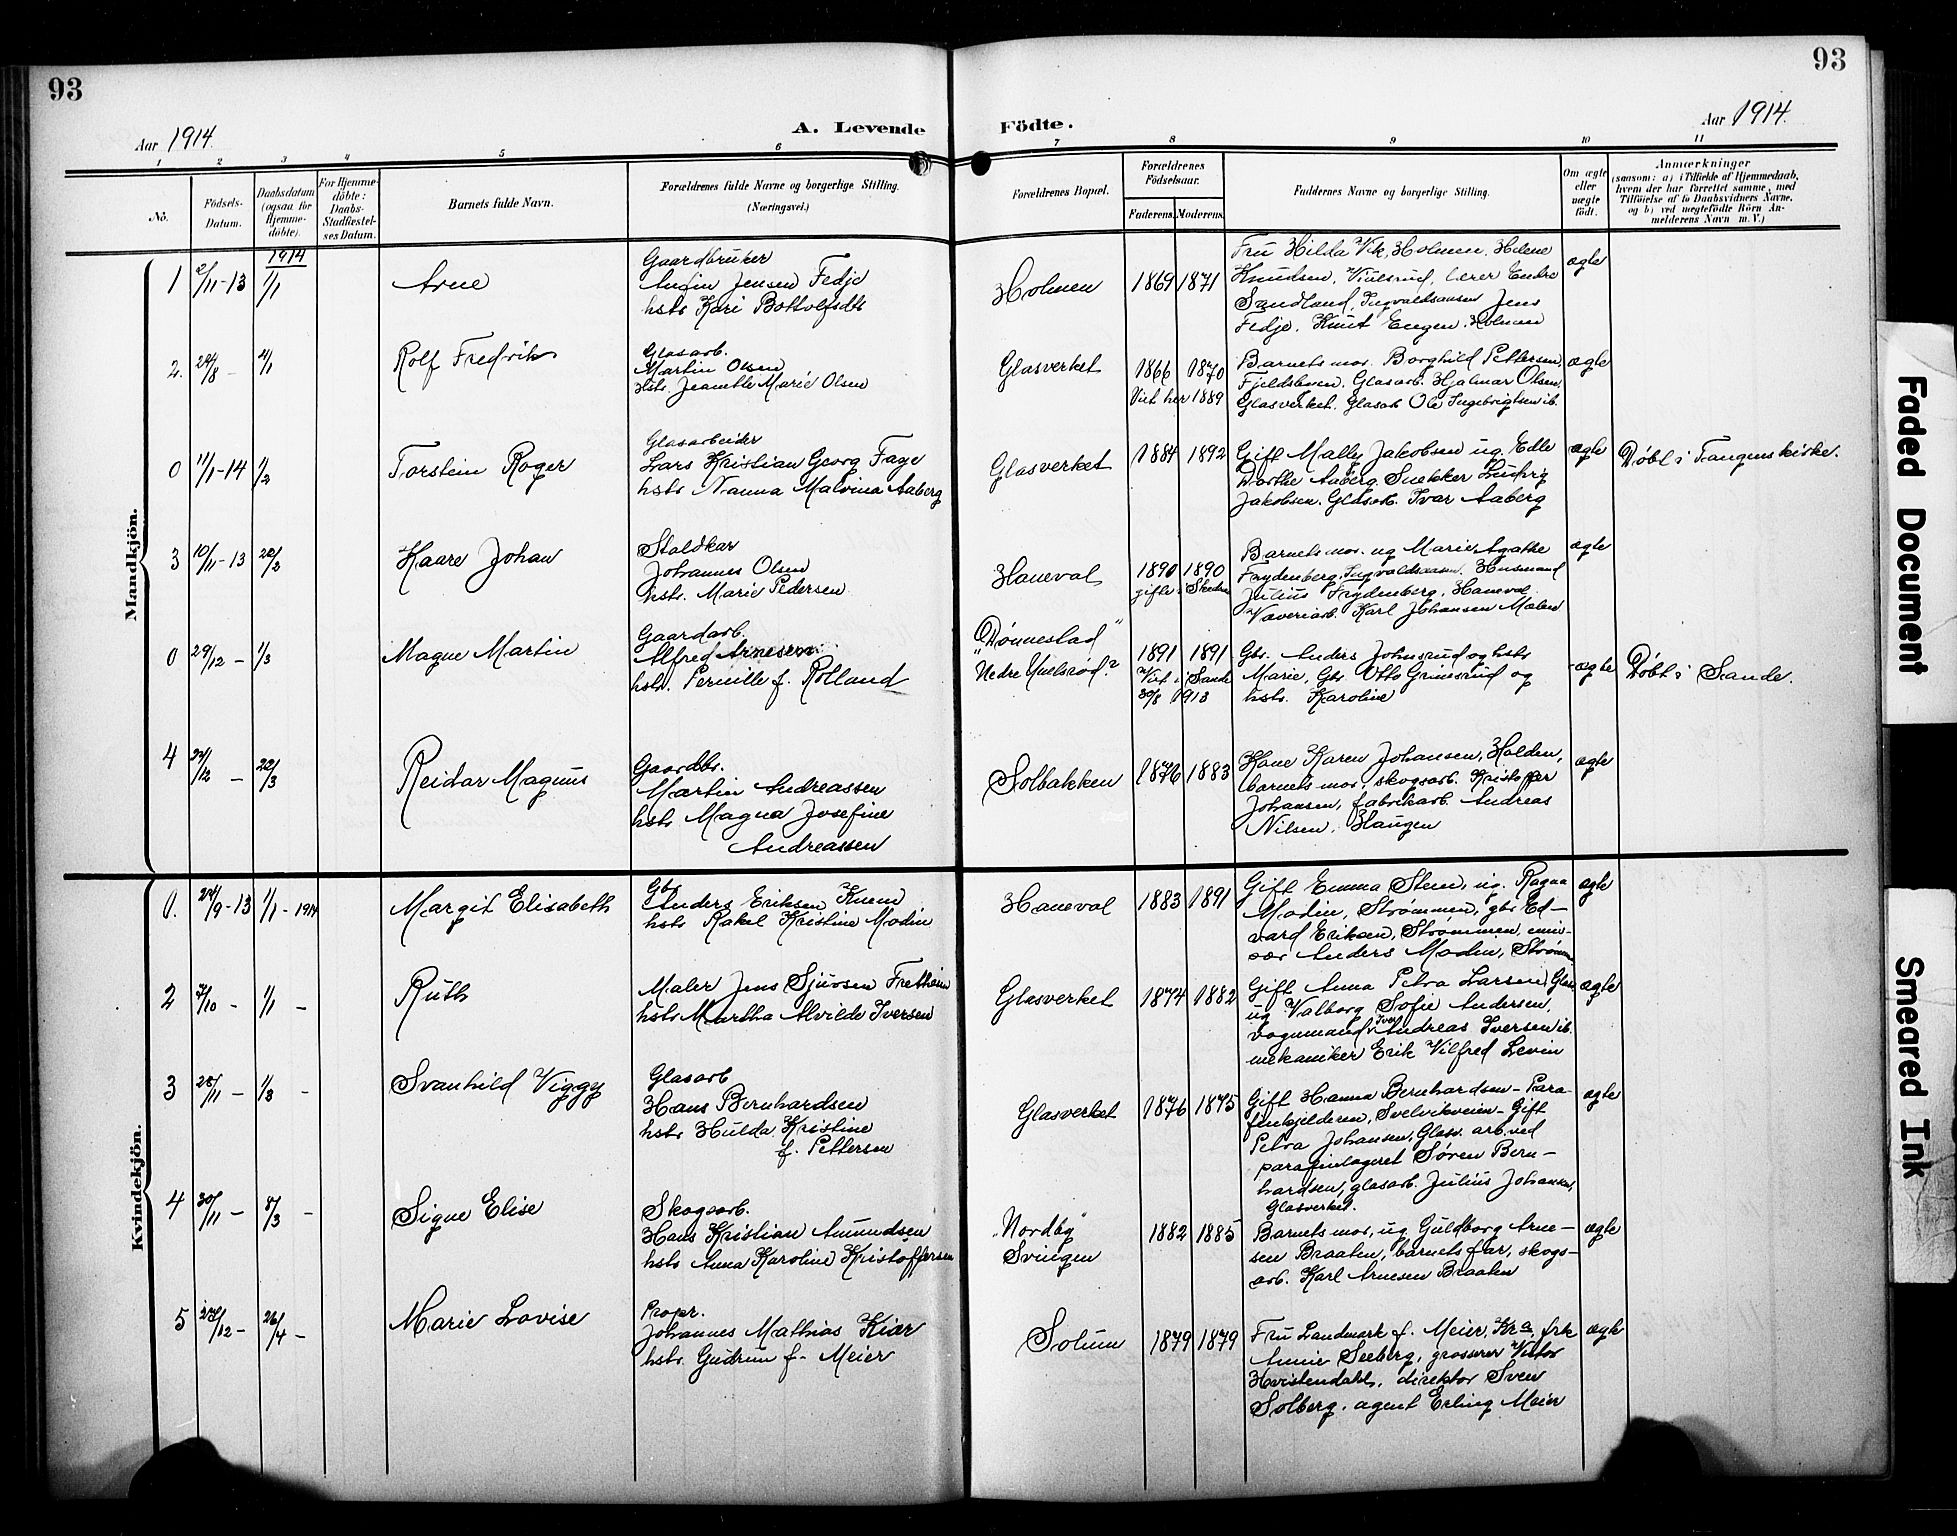 93
93
Aar 1914.
A. Levende
Födte.
Aar 1914.
1 2 3 4 5 6 7 8 9 10 11
No.
Födsels-
Datum.
Daabsdatum
(ogsaa for
Hjemme-
döbte).
For Hjemme-
döbte:
Daabs-
Stadfæstel-
ses Datum.
Barnets fulde Navn.
Forældrenes fulde Navne og borgerlige Stilling.
(Næringsvei.)
Forældrenes Bopæl.
Forældrenes
Födselsaar.
Faderens.
Moderens.
Faddernes Navne og borgerlige Stilling.
Om ægte
eller
uægte
födt.
Anmærkninger
(saasom: a) i Tilfælde af Hjemmedaab,
hvem der har forrettet samme, med
Tilföielse af to Daabsvidners Navne,
og b) ved uegtefödte Börn An-
melderens Navn m. V.)
Mandkjön.
1914
1 2/11-13 1/1
Arne
Gaardbruker
Jensen Fedje
hstr Kari Bottolfsdtr
Holmen
1869 1871
Fru Hilda Vik, Holmen, Helene
Knudsen, lærer Endre
Sandland, Ingvaldsaasen Jens
Fedje, Knut Engen, Holmen
ægte
2. 29/8 - 4/1
Rolf Fredrik
Glasarb.
Martin Olsen
Hstr. Jeanette Marie Olsen
Glasverket
1866 1870
Viet her 1889
Barnets mor, Borghild Pettersen,
Glasarb. Hjalmar Olsen,
Glasverket. Glasarb Ole Ingebrigtsen ib.
ægte
0 11/1-14 1/2
Torstein Roger
Glasarbeider
Lars Kristian Georg Faye
hstr Nanna Malvina Aaberg
Glasverket
1884 1892
Gift Mally Jakobsen ug. Edle
Dorthe Aaberg. Snekker Ludvig
Jakobsen. Glasarb. Ivar Aaberg
ægte
Døbt i Tangens kirke.
3 10/11-13 22/2
Kaare Johan
Staldkar
Johannes Olsen
hstr. Marie Pedersen
Haneval
1890 1890
gifte i Skedsm
Barnets mor, ug Marie Agathe
Frydenberg, Ingvaldsaasen. Husmand
Julius Frydenberg, Haneval.
Væveriarb. Karl Johansen Malen
ægte
0 29/12 - 1/3
Magne Martin
Gaardarb.
Alfred Arnesen
hstr. Pernille f. Rolland
"Dønnestad"
Nedre
1891 1891
Viet i Sande
30/8 1913
Gbr. Anders Johnsrud og hstr
Marie, Gbr Otto Grimsrud og
hstr. Karoline
ægte
Døbt i Sande.
4 22/12 - 22/3
Reidar Magnus
Gaardbr.
Martin Andreassen
hstr Magna Josefine
Andreassen
Solbakken
1876 1883
Kone Karen Johansen, Holden,
barnets mor, skogsarb. Kristoffer
Johansen, fabrikarb. Andreas
Nilsen, Haugen
ægte
Kvindekjön.
1. 24/9-13 1/1 - 1914
Margit Elisabeth
Gbr
Anders Eriksen Knem
hstr Rakel Kristine Modin
Haneval
1883 1891
Gift Emma Steen, ug. Ragna
Modin, Strømmen, gbr Ed-
vard Eriksen, Strømmen,
Anders Modin, Strømm
ægte
2 7/10 - 1/1 -
Ruth
Maler Jens Sjursen Fretheim
hstr Martha Alvilde Iversen
Glasverket
1874 1882
Gift Anna Petra Larsen, Glas
ug Valborg Sofie Andersen,
vognmand Iver Andreas Iversen ib.
mekaniker Erik Vilfred Levin
ægte
3 28/11 - 1/3 -
Svanhild Viggy
Glasarb
Hans Bernhardsen
hstr Hulda Kristine
f. Pettersen
Glasverket
1876 1875
Gift Hanna Bernhardsen - Para-
finkjelderen, Svelvikveien - Gift
Petra Johansen, Glasv. arb ved
parafinlageret Søren Bern-
hardsen, glasarb. Julius Johansen,
Glasverket.
ægte
4 30/11 - 8/3 -
Signe Elise
Skogsarb.
Hans Kristian Amundsen
hstr Anna Karoline Kristoffersen
"Nordby"
Svingen
1882 1885
Barnets mor, ug Guldborg Arne-
sen Braaten, barnets far, skogs-
arb. Karl Arnesen Braaten
ægte
5 28/12 - 26/4 -
Marie Lovise
Propr.
Johannes Mathias Kiær
hstr. Gudrun f. Meier
Solum
1879 1879
Fru Landmark f. Meier, Kra, frk
Annie Seeberg, grosserer Victor
Hvistendahl, direktør Sven
Solberg, agent Erling Meier
ægte
Faded Document
Smeared Ink